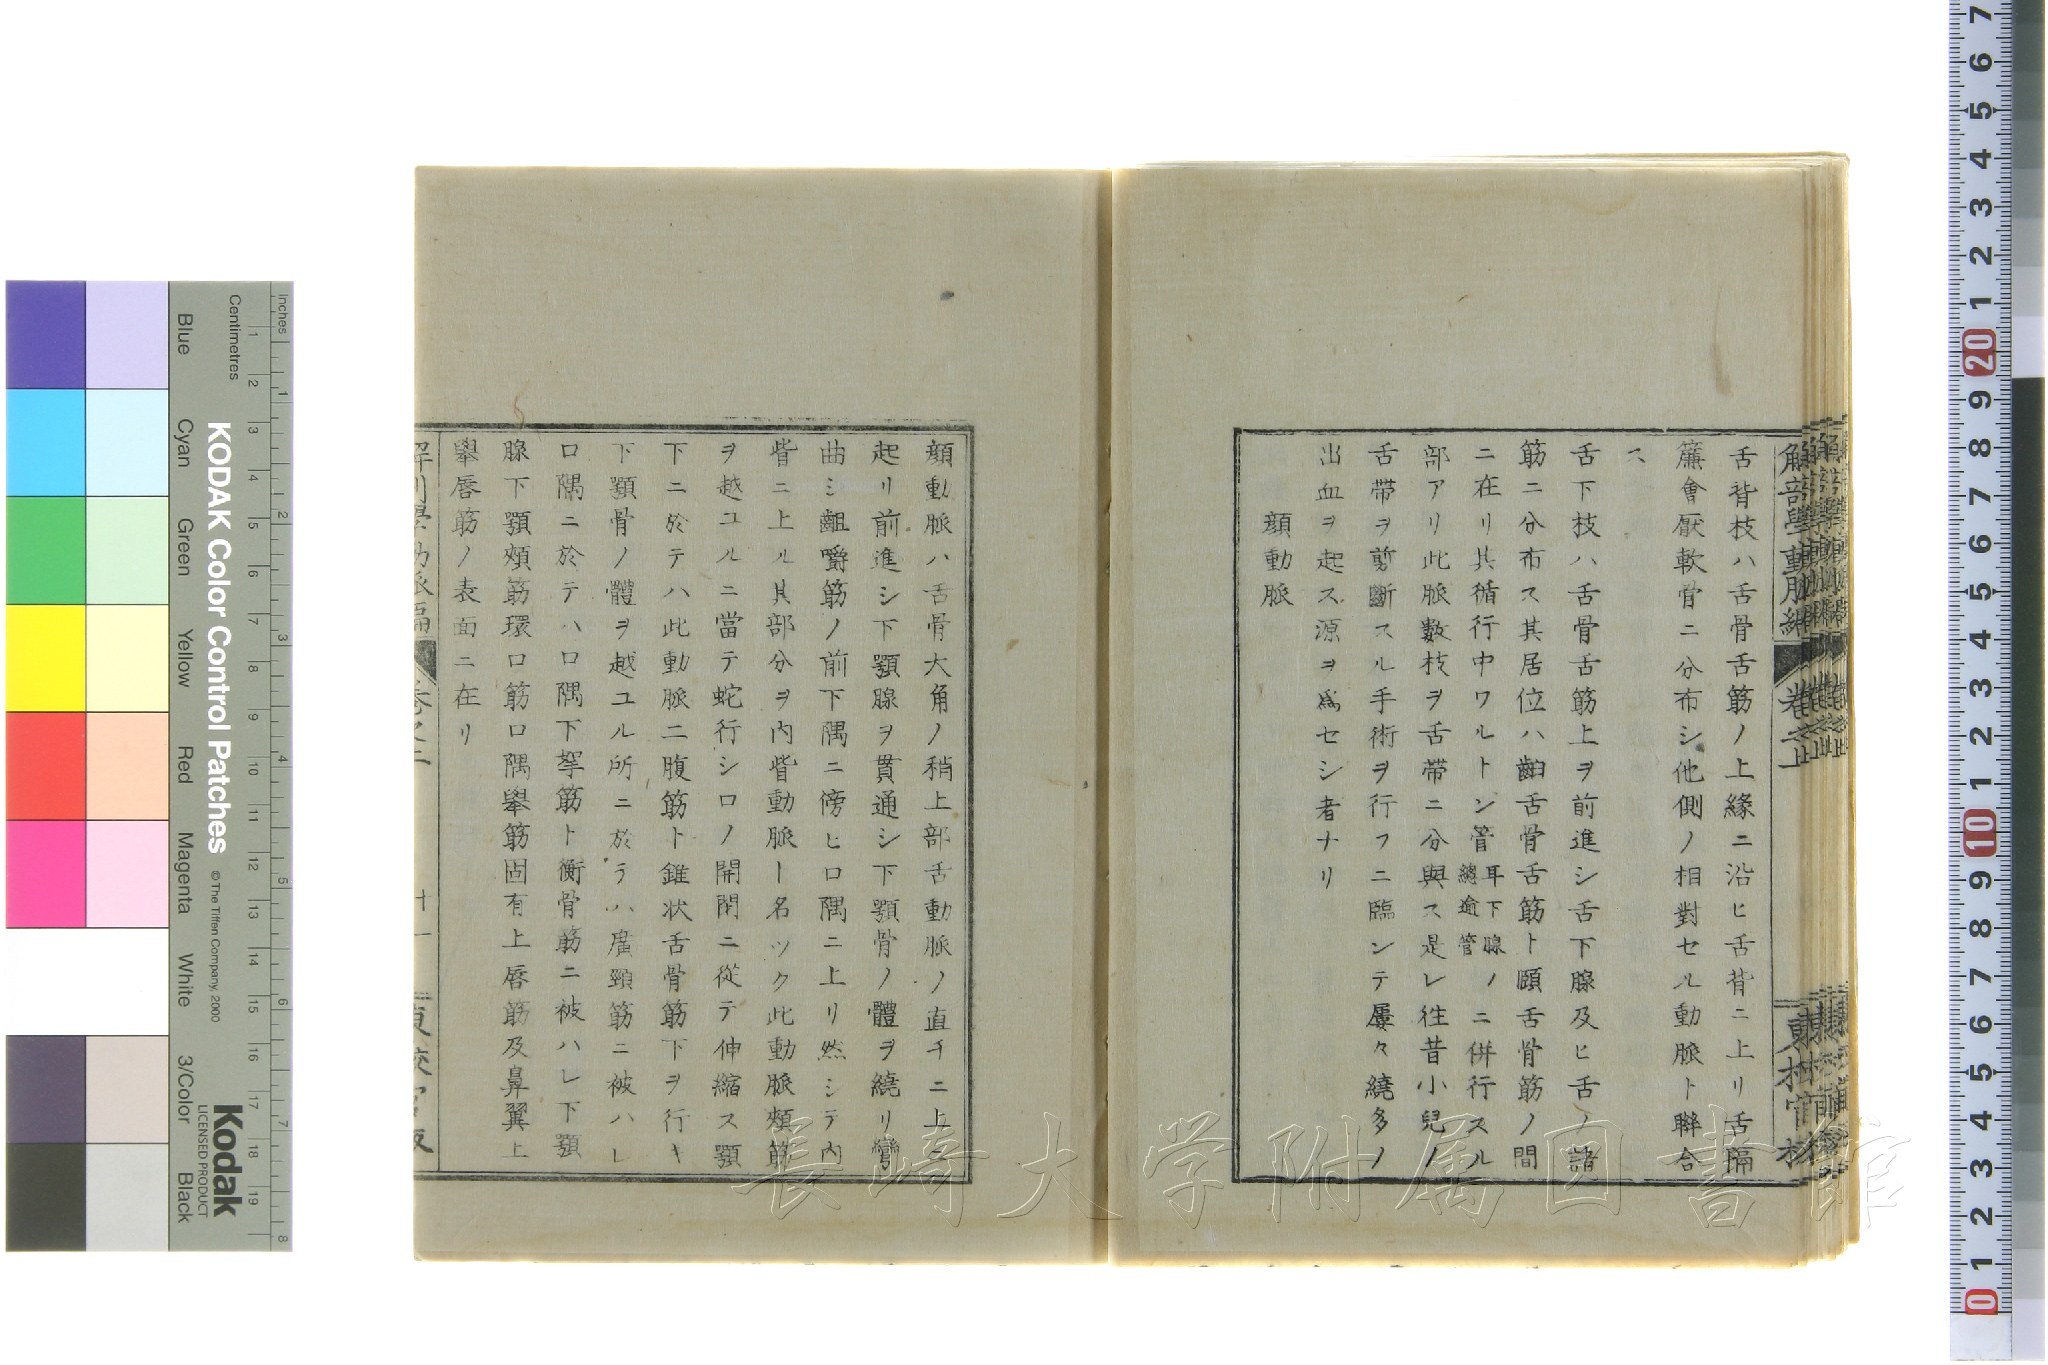 舌背枝ハ舌骨舌筋ノ上緣ニ沿ヒ舌背ニ上リ舌隔
簾會厭軟骨ニ分布シ他側ノ相對セル動脈ト聯合
ス
舌下枝ハ舌骨舌筋上ヲ前進シ舌下腺及ヒ舌ノ諸
筋ニ分布ス其居位ハ齣舌骨舌筋ト頤舌骨筋ノ間
ニ在リ其循行中ワルトン管耳下腺ノ總逾管ニ併行スル
部アリ此脈數枝ヲ舌帶ニ分與ス是レ徃昔小兒ノ
舌帶ヲ剪斷スル手術ヲ行フニ臨ンテ屢々繞多ノ
出血ヲ起ス源ヲ爲セシ者ナリ
顔動脈
顔動脈ハ舌骨大角ノ稍上部舌動脈ノ直チニ上ニ
起リ前進シ下顎腺ヲ貫通シ下顎骨ノ體ヲ繞リ彎
曲シ齟嚼筋ノ前下隅ニ傍ヒ口隅ニ上リ然シテ内
眥ニ上ル其部分ヲ内眥動脈ト名ツク此動脈頰筋
ヲ越ユルニ當テ蛇行シ口ノ開閉ニ從テ伸縮ス顎
下ニ於テハ此動脈二腹筋ト錐状舌骨筋下ヲ行キ
下顎骨ノ體ヲ越ユル所ニ於テハ廣頸筋ニ被ハレ
口隅ニ於テハ口隅下掣筋ト衡骨筋ニ被ハレ下顎
腺下顎頰筋環口筋口隅擧筋固有上唇筋及鼻翼上
擧唇筋ノ表面ニ在リ
解剖學動脈編 卷之上
十一
KODAK Color Control Patches
© The Tiffen Company, 2000
Kodak
LICENSED PRODUCT
Inches
Centimetres
Blue
Cyan
Green
Yellow
Red
Magenta
White
3/Color
Black
長崎大学附属図書館